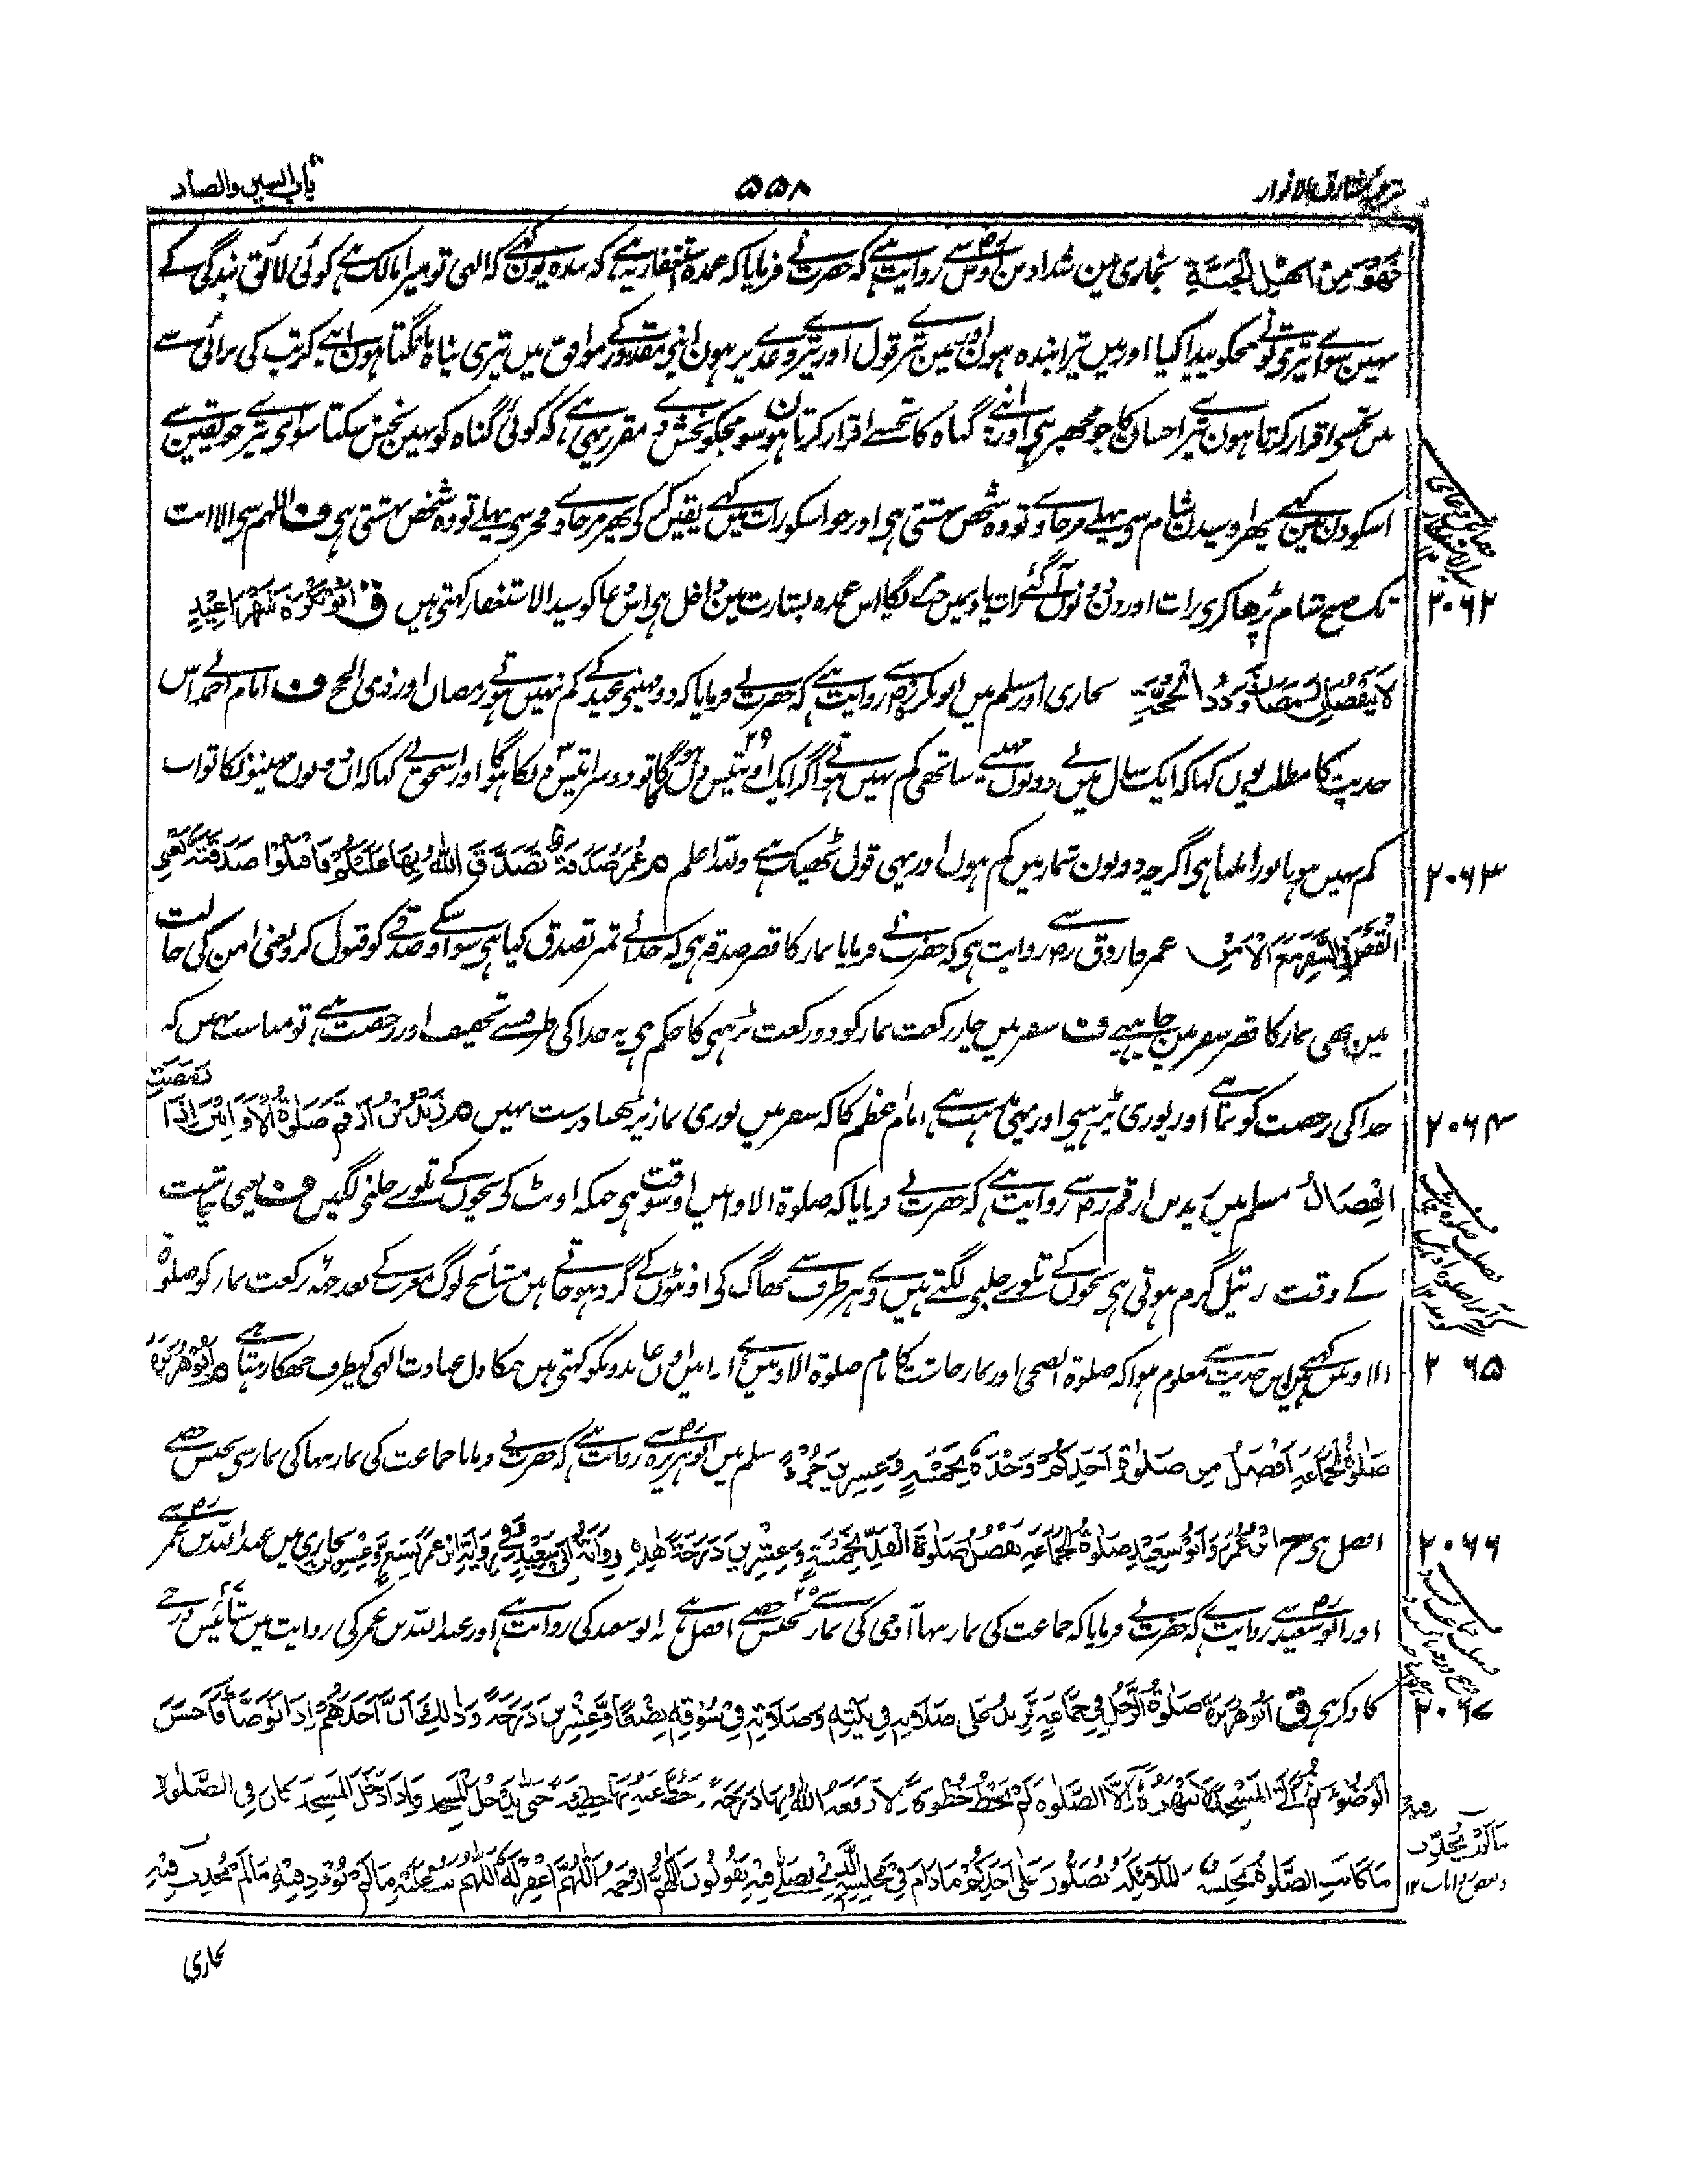 باب السین والصاد
۵۵۸
ترجمہ مشارق الانوار
فَهُوَ مِنْ اَهْلِ الْجَنَّةِ بخاری مین شداد بن اوس رض سے روایت ہے کہ حضرت نے فرمایا کہ عمدہ استغفار یہ ہے کہ بندہ یون کہے کہ الہی تو میرا مالک ہے کوئی لائق بندگی کے
نہین سوائے تیری تو نے مجکو پیدا کیا اور میں تیرا بندہ ہون اور مین تیرے قول اور تیرے وعدے پر ہون اپنی مقدور کے موافق میں تیری پناہ مانگتا ہون اپنے کرتب کی برائی سے
میں تجھسے اقرار کرتا ہون تیرے احسان کا جو مجھپر ہی اور اپنے گناہ کا تجھسے اقرار کرتا ہون سو مجکو بخش دے مقرر یہی ہے کہ کوئی گناہ کو نہین بخش سکتا سوائے تیرے جو یقین سے
اسکو دن مین کہے پھر اوسیدن شام سی پہلے مرجاوے تو وہ شخص بہشتی ہی اور جو اسکو رات میں کہے یقین کر کی پھر مرجاوے فجر سی پہلے تو وہ شخص بہشتی ہی ف اللهم سی الا انت
تک صبح شام پڑھا کری رات اور دن دونوں آگئے رات یا دن میں مرے گا اس عمدہ بشارت مین داخل ہی اس دعا کو سید الاستغفار کہتی ہیں ق اَبُوْ بَکْرَةَ شَهْرَا عِیْدٍ
۲۰۶۲
لَا یَنْقُصَانِ رَمَضَانُ وَذُو الْحِجَّةِ بخاری اور مسلم میں ابو بکرہ رض سے روایت ہے کہ حضرت نے فرمایا کہ دو مہینی عید کے کم نہیں ہوتے رمضان اور ذی الحج ف امام احمد اس
حدیث کا مطلب یوں کہا کہ ایک سال میں یے دونوں مہینے ساتھی کم نہیں ہوتے اگر ایک اونتیس ۲۹ دن ہوگا تو دوسرا تیس دن کا ہوگا اور اسحق نے کہا کہ ان دونوں مہینونکا ثواب
کم نہیں ہوتا پورا ملتا ہی اگرچہ دونون شمار میں کم ہوں اور یہی قول ٹھیک ہے واللہ اعلم م عُمَرُ صَدَقَةٌ تَصَدَّقَ اللهُ بِهَا عَلَیْکُمْ فَاقْبَلُوْا صَدَقَتَهٗ یَعْنِی
۲۰۶۳
الْقَصْرَ فِی السَّفَرِ مَعَ الْاَمْنِ عمر فاروق رض سے روایت ہی کہ حضرت نے فرمایا نماز کا قصر صدقہ ہی کہ خدا نے تمپر تصدق کیا ہی سو اوسکے صدقے کو قبول کرو یعنی امن کی حالت
مین بھی نماز کا قصر سفر مین چاہیے ف سفر میں چار رکعت نماز کو دو رکعت پڑہنی کا حکم ہی یہ خدا کی طرف سے تخفیف اور رخصت ہے تو مناسب نہیں کہ
خدا کی رخصت کو نمانے اور پوری پڑہی اور یہی مذہب ہے امام اعظم کا کہ سفر میں پوری نماز پڑھنا درست نہیں م زَیْدُ بْنُ اَرْقَمَ صَلٰوةُ الْاَوَّابِیْنَ اِذَا رَمِضَتِ
۲۰۶۴
الْفِصَالُ مسلم میں زید بن ارقم رض سے روایت ہے کہ حضرت نے فرمایا کہ صلوة الاوابین اوسوقت ہی جبکہ اونٹ کی بچوں کے تلوے جلنی لگیں ف یعنی چاشت
کے وقت ریتیل گرم ہوتی ہی بچوں کے تلوے جلنی لگتے ہیں وے ہر طرف سے بھاگ کی اونٹوں کے گرد ہو جاتے ہین مشائخ لوگ مغرب کے بعد چھہ رکعت نماز کو صلوة
الاوابین کہتے ہیں اس حدیث سے معلوم ہوا کہ صلوة الضحی اور نماز چاشت کا نام صلوة الاوابین ہے اوابین اون عابدونکو کہتی ہیں جنکا دل عبادت الہی کیطرف جھکا رہتا ہے م اَبُوْ هُرَیْرَةَ
۲۰۶۵
صَلٰوةُ الْجَمَاعَةِ اَفْضَلُ مِنْ صَلٰوةِ اَحَدِکُمْ وَحْدَهٗ بِخَمْسَةٍ وَّعِشْرِیْنَ جُزْءً مسلم میں ابو ہریرہ رض سے روایت ہے کہ حضرت نے فرمایا جماعت کی نماز تنہا کی نماز سی پچیس حصے
افضل ہی خ اِبْنُ عُمَرَ وَاَبُوْ سَعِیْدٍ صَلٰوةُ الْجَمَاعَةِ تَفْضُلُ صَلٰوةَ الْفَذِّ بِخَمْسَةٍ وَّعِشْرِیْنَ دَرَجَةً هٰذِهٖ رِوَایَةُ اَبِیْ سَعِیْدٍ وَفِیْ رِوَایَةِ ابْنِ عُمَرَ بِسَبْعٍ وَّعِشْرِیْنَ بخاری میں عبد اللہ بن عمر رض سے
۲۰۶۶
اور ابو سعید رض سے روایت ہے کہ حضرت نے فرمایا کہ جماعت کی نماز تنہا آدمی کی نماز سے پچیس ۲۵ حصے افضل ہے یہ ابو سعید کی روایت ہے اور عبد اللہ بن عمر کی روایت میں ستائیس درجے
کا ذکر ہی ق اَبُوْ هُرَیْرَةَ صَلٰوةُ الرَّجُلِ فِیْ جَمَاعَةٍ تَزِیْدُ عَلٰی صَلَاتِهٖ فِیْ بَیْتِهٖ وَصَلَاتِهٖ فِیْ سُوْقِهٖ بِضْعًا وَّعِشْرِیْنَ دَرَجَةً وَذٰلِكَ اَنَّ اَحَدَهُمْ اِذَا تَوَضَّأَ فَاَحْسَنَ
۲۰۶۷
الْوُضُوْءَ ثُمَّ اَتَی الْمَسْجِدَ لَا یَنْهَزُهٗ اِلَّا الصَّلٰوةُ لَمْ یَخْطُ خُطْوَةً اِلَّا رَفَعَهُ اللهُ بِهَا دَرَجَةً وَحَطَّ عَنْهُ بِهَا خَطِیْئَةً حَتّٰی یَدْخُلَ الْمَسْجِدَ وَاِذَا دَخَلَ الْمَسْجِدَ کَانَ فِی الصَّلٰوةِ
مَا کَانَتِ الصَّلٰوةُ تَحْبِسُهٗ وَالْمَلَائِکَةُ یُصَلُّوْنَ عَلٰی اَحَدِکُمْ مَا دَامَ فِیْ مَجْلِسِهِ الَّذِیْ یُصَلِّیْ فِیْهِ یَقُوْلُوْنَ اَللّٰهُمَّ ارْحَمْهُ اَللّٰهُمَّ اغْفِرْ لَهٗ اَللّٰهُمَّ تُبْ عَلَیْهِ مَا لَمْ یُؤْذِ فِیْهِ مَا لَمْ یُحْدِثْ فِیْهِ
بخاری